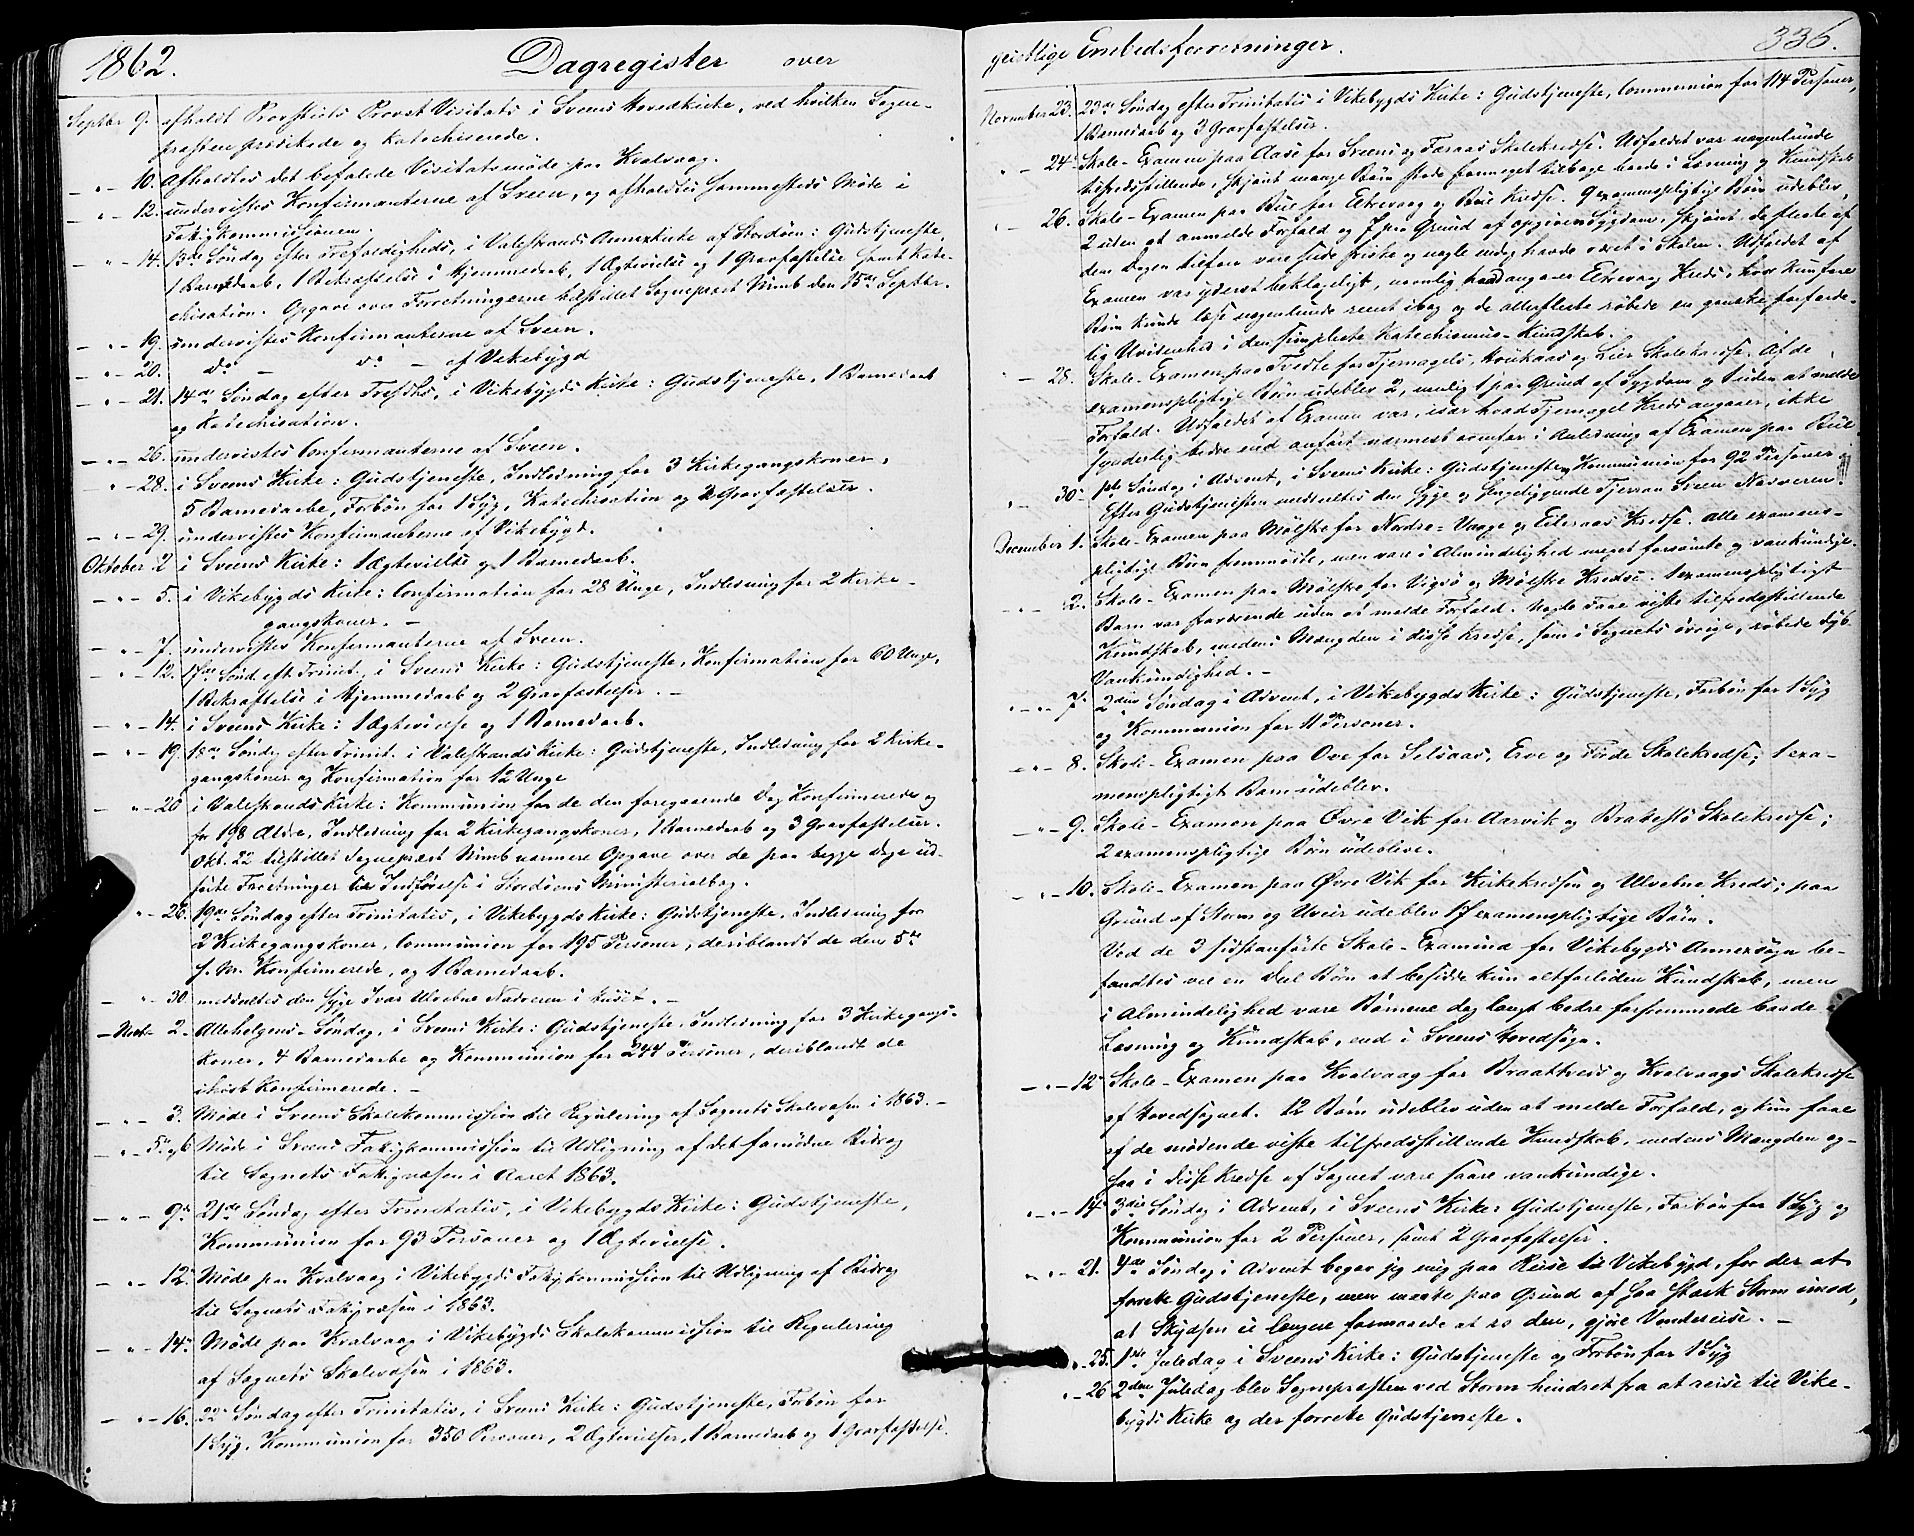 1862. Dagregister over
Septbr 9. afholdt Provstiets Provst Visitats i Sveens Hovedkirke, ved hvilken Sogne-
præsten prædikede og katechiserede.
— " — 10. Afholdtes det befalede Visitatsmöde paa Kvalvaag.
— " — 12. undervistes Konfirmanterne af Sveen, og afholdtes sammesteds Möde i
Fattigkommissionen.
— " — 14. 13de Söndag efter Trefoldigheds, i Valestrands Annexkirke af Stordöen: Gudstjeneste,
1 Barnedaab, 1 Bekræftelse i Hjemmedaab, 1 Ægtevielse og 1 Gravfæstelse samt Kate-
chisation. Opgave over Forretningerne tilstillet Sognepræst Nimb den 15de Septbr.
— " — 19. undervistes Konfirmanterne af Sveen.
— " — 20. do — do — af Vikebygd
— " — 21. 14de Söndag efter Trefhds, i Vikebygds Kirke: Gudstjeneste, 1 Barnedaab
og Katechisation.
— " — 26. undervistes Confirmanterne af Sveen.
" — 28. i Sveens Kirke: Gudstjeneste, Indledning for 3 Kirkegangskoner,
5 Barnedaabe, Forbön for 1 Syg, Katechisation og 2 Gravfæstelser.
— " — 29. undervistes Konfirmanterne af Vikebygd.
Oktober 2 i Sveens Kirke: 1 Ægtevielse og 1 Barnedaab.
— " — 5. i Vikebygds Kirke: Confirmation for 28 Unge, Indledning for 2 Kirke-
gangskoner. —
— " — 7. undervistes Konfirmanterne af Sveen.
— " — 12. 17de Sönd eft Trinit., i Sveens Kirke: Gudstjeneste, Konfirmation for 60 Unge,
1 Bekræftelse i Hjemmedaab og 2 Gravfæstelser. —
— " — 14. i Sveens Kirke: 1 Ægtevielse og 1 Barnedaab.
— " — 19. 18de Söndg efter Trinit. i Valestrands Kirke: Gudstjeneste, Indledning for 2 Kirke-
gangskoner og Konfirmation for 12 Unge
— " — 20 i Valestrands Kirke: Kommunion for de den foregaaende Dag Konfirmerede og
for 198 Ældre, Indledning for 2 Kirkegangskoner, 1 Barnedaab og 3 Gravfæstelser.
Okt. 22 tilstillet Sognepræst Nimb nærmere Opgave over de paa begge Dage ud-
förte Forretninger til Indförelse i Stordöens Ministerialbog.
" — 26. 19de Söndag efter Trinitatis, i Vikebygds Kirke: Gudstjeneste, Indledning for
2 Kirkegangskoner, Communion for 195 Personer, deriblandt de den 5te
s. M. Konfirmerede, og 1 Barnedaab.
— " — 30. meddeltes den syge Ivar Ulvebne Nadveren i Huset. —
— Novbr 2. Allehelgens-Söndag, i Sveens Kirke: Gudstjeneste, Indledning for 3 Kirkegangs-
koner, 4 Barnedaabe og Kommunion for 244 Personer, deriblandt de
ihöst Konfirmerede. —
— " — 3. Möde i Sveens Skolekommission til Regulering af Sognets Skolevæsen i 1863. —
— " — 5te og 6 Möde i Sveens Fattigkommission til Udligning af det fornödne Bidrag
til Sognets Fattigvæsen i Aaret 1863.
— " — 9de 21de Söndag efter Trinitatis, i Vikebygds Kirke: Gudstjeneste,
Kommunion for 93 Personer og 1 Ægtevielse.
— " — 12te Möde paa Kvalvaag i Vikebygds Fattigkommission til Udligning af Bidrag
til Sognets Fattigvæsen i 1863.
— " — 14de Möde paa Kvalvaag i Vikebygds Skolekommission til Regulering
af Sognets Skolevæsen i 1863.
— " — 16. 22de Söndag efter Trinitatis, i Sveens Kirke: Gudstjeneste, Forbön for
1 Syg, Kommunion for 350 Personer, 2 Ægtevielser, 1 Barnedaab og 1 Gravfæstelse.
geistlige Embedsforretninger. 336.
November 23. 23de Söndag efter Trinitatis i Vikebygds Kirke: Gudstjeneste, Communion for 114 Personer,
1 Barnedaab og 3 Gravfæstelser.
" — 24. Skole-Examen paa Aase for Sveens og Færaas Skolekredse. Udfaldet var nogenlunde
tilfredsstillende, skjönt mange Börn stode saare meget tilbage baade i Læsning og Kundskab
" — 26. Skole-Examen paa Bue for Ekrevaag og Bue Kredse. 9 examenspligtige Börn udeblev,
2 uden at anmelde Forfald og 7 paa Grund af opgiven Sygdom, skjönt de fleste af
dem Dagen tilforn vare friske og nogle endog havde været i Skolen. Udfaldet af
Examen var yderst beklageligt, navnlig hvad angaaer Ekrevaag Kreds, hvor kun faae
Börn kunde læse nogenlunde reent i bog og de allerfleste röbede en ganske forfærde-
lig Uvidenhed i den simpleste Katechismus-Kundskab.
— 28. Skole-Examen paa Tvedte for Tjernagels, Houkaas og Lier Skolekredse. Af de
examenspligtige Börn udeblev 2, nemlig 1 paa Grund af Sygdom og 1 uden at melde
Forfald. Udfaldet af Examen var, især hvad Tjernagel Kreds angaaer, ikke
synderlig bedre end anfört nærmest ovenfor i Anledning af Examen paa Bue.
" — 30te 1ste Söndag i Advent, i Sveens Kirke: Gudstjeneste, Kommunion for 92 Personer.
Efter Gudstjenesten meddeltes den syge og sengeliggende Sveen Nadveren.
December 1. Skole-Examen paa Mölste for Nordre-Vaage og Eilernaas Kredse. Alle examens-
pligtige Börn fremmödte, men vare i Almindelighed meget forsömte og vankundige.
— " — 2. Skole-Examen paa Mölste for Vigsö og Mölste Kredse. 1 examenspligtigt
Barn var fraværende uden at melde Forfald. Nogle Faae viste tilfredsstillende
Kundskab, medens Mængden i disse Kredse, som i Sognets övrige, röbede dyb
Vankundighed. —
" — " — 7de 2den Söndag i Advent, i Vikebygds Kirke: Gudstjeneste, Forbön for 1 Syg
og Kommunion for 11 Personer.
— " — 8. Skole-Examen paa Ove for Silsaas, Erve og Förde Skolekredse; 1 exa-
menspligtigt Barn udeblev.
— " — 9. Skole-Examen paa Övre Vik for Aarvik og Bratestö Skolekredse;
2 examenspligtige Börn udebleve.
— " — 10. Skole-Examen paa Övre Vik for Kirkekredsen og Ulvebne Kreds; paa
Grund af Storm og Uveir udeblev 17 examenspligtige Börn.
Ved de 3 sidstanförte Skole-Examina for Vikebygds Annexsogn be-
fandtes vel en Deel Börn at besidde kun altforliden Kundskab, men
i Almindelighed vare Börnene dog langt bedre forfremmede baade i
Læsning og Kundskab, end i Sveens Hovedsogn.
— " — 12te Skole-Examen paa Kvalvaag for Braatveid og Kvalvaags Skolekredse
af Hovedsognet. 12 Börn udeblev uden at melde Forfald, og kun faae
af de mödende viste tilfredsstillende Kundskab, medens Mængden og-
saa i disse Kredse af Sognet vare saare vankundige.
" — " — 14de 3die Söndag i Advent, i Sveens Kirke: Gudstjeneste, Forbön for 1 Syg og
Kommunion for 2 Personer, samt 2 Gravfæstelser.
" — " — 21. 4de Söndag i Advent begav jeg mig paa Reise til Vikebygd, for der at
forrette Gudstjeneste, men maatte paa Grund af saa stærk Storm imod,
at Skydsen ei længere formaaede at ro den, gjöre Vendereise. —
" — 25. 1ste Juledag i Sveens Kirke: Gudstjeneste og Forbön for 1 Syg
" — 26 2den Juledag blev Sognepræsten ved Storm hindret fra at reise til Vike-
bygds Kirke og der forrette Gudstjeneste.